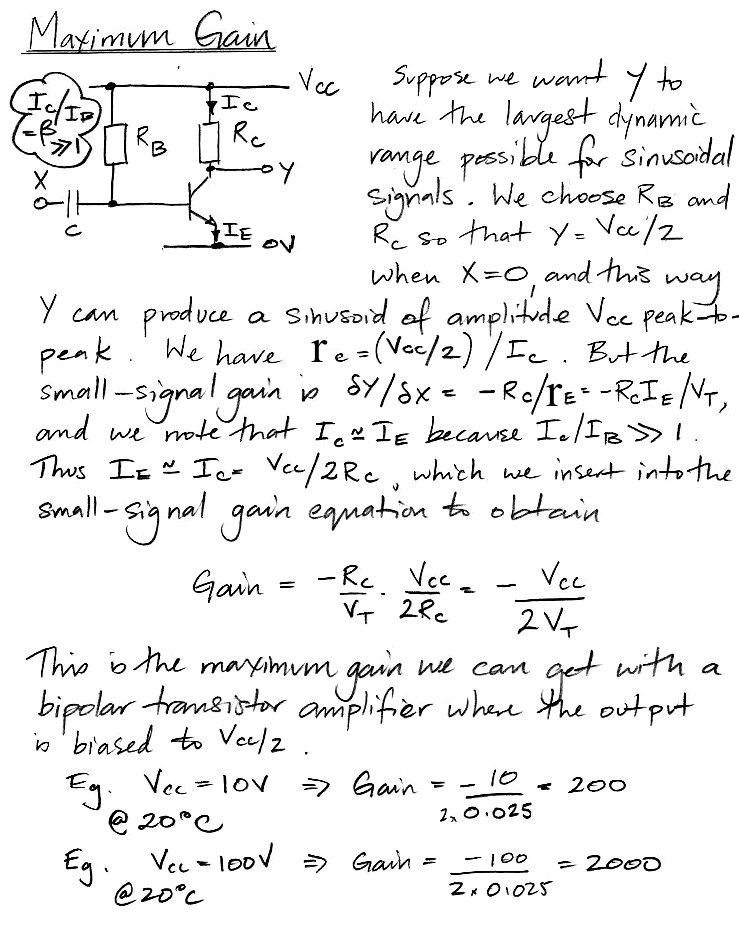 Maximum Gain
Vcc
Ic/IB
= β
≫1
Ic
RB
Rc
X
Y
C
IE
0V
Suppose we want Y to
have the largest dynamic
range possible for sinusoidal
signals. We choose RB and
Rc so that Y = Vcc/2
when X=0, and this way
Y can produce a sinusoid of amplitude Vcc peak-to-
peak. We have re =(Vcc/2) / Ic. But the
small-signal gain is δY/δX = -Rc/rE = -RcIE/VT,
and we note that Ic ≃ IE because Ic/IB ≫ 1.
Thus IE ≃ Ic = Vcc/2Rc, which we insert into the
small-signal gain equation to obtain
Gain = -Rc/VT . Vcc/2Rc = - Vcc/2VT
This is the maximum gain we can get with a
bipolar transistor amplifier where the output
is biased to Vcc/2.
Eg. Vcc = 10V ⇒ Gain = -10/2x0.025 = 200
@ 20°C
Eg. Vcc = 100V ⇒ Gain = -100/2x0.025 = 2000
@ 20°C